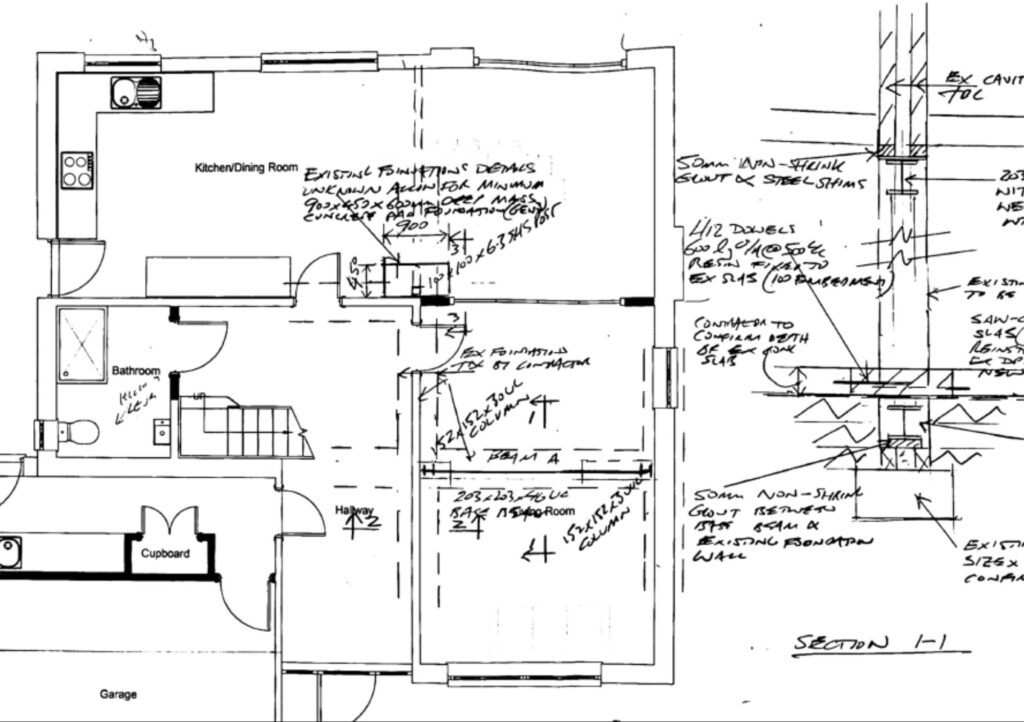 EX CAVIT
TOC
Kitchen/Dining Room
EXISTING FOUNDATIONS DETAILS
UNKNOWN ALLOW FOR MINIMUM
900x450x600mm DEEP MASS
CONCRETE PAD FOUNDATION
900
450
100x100x6.3 SHS POST
3
3
50mm NON-SHRINK
GROUT & STEEL SHIMS
203
WIT
WE
4/12 DOWELS
600 lg @ 500 %
RESIN FIXED TO
EX SLAB (100 EMBEDMENT)
EXISTIN
TO BE
CONTRACTOR TO
CONFIRM DEPTH
OF EX CONC
SLAB
SAW-C
SLAB
REINST
EX DP
NEW
EX FOUNDATION
BY CONTRACTOR
152x152x30 UC
COLUMN
Bathroom
UP
1
BEAM A
203x203x46 UC
BASE BEAM
Living Room
152x152x30 UC
COLUMN
Hallway
2
2
1
Cupboard
Garage
50mm NON-SHRINK
GROUT BETWEEN
BASE BEAM &
EXISTING FOUNDATION
WALL
EXISTI
SIZE x
CONFIR
SECTION 1-1